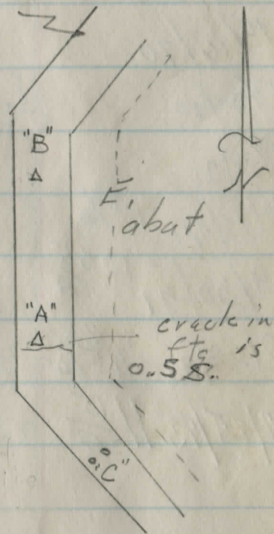 "B"
E. abut
"A"
crack in
ftg is
0.5 S.
"C"